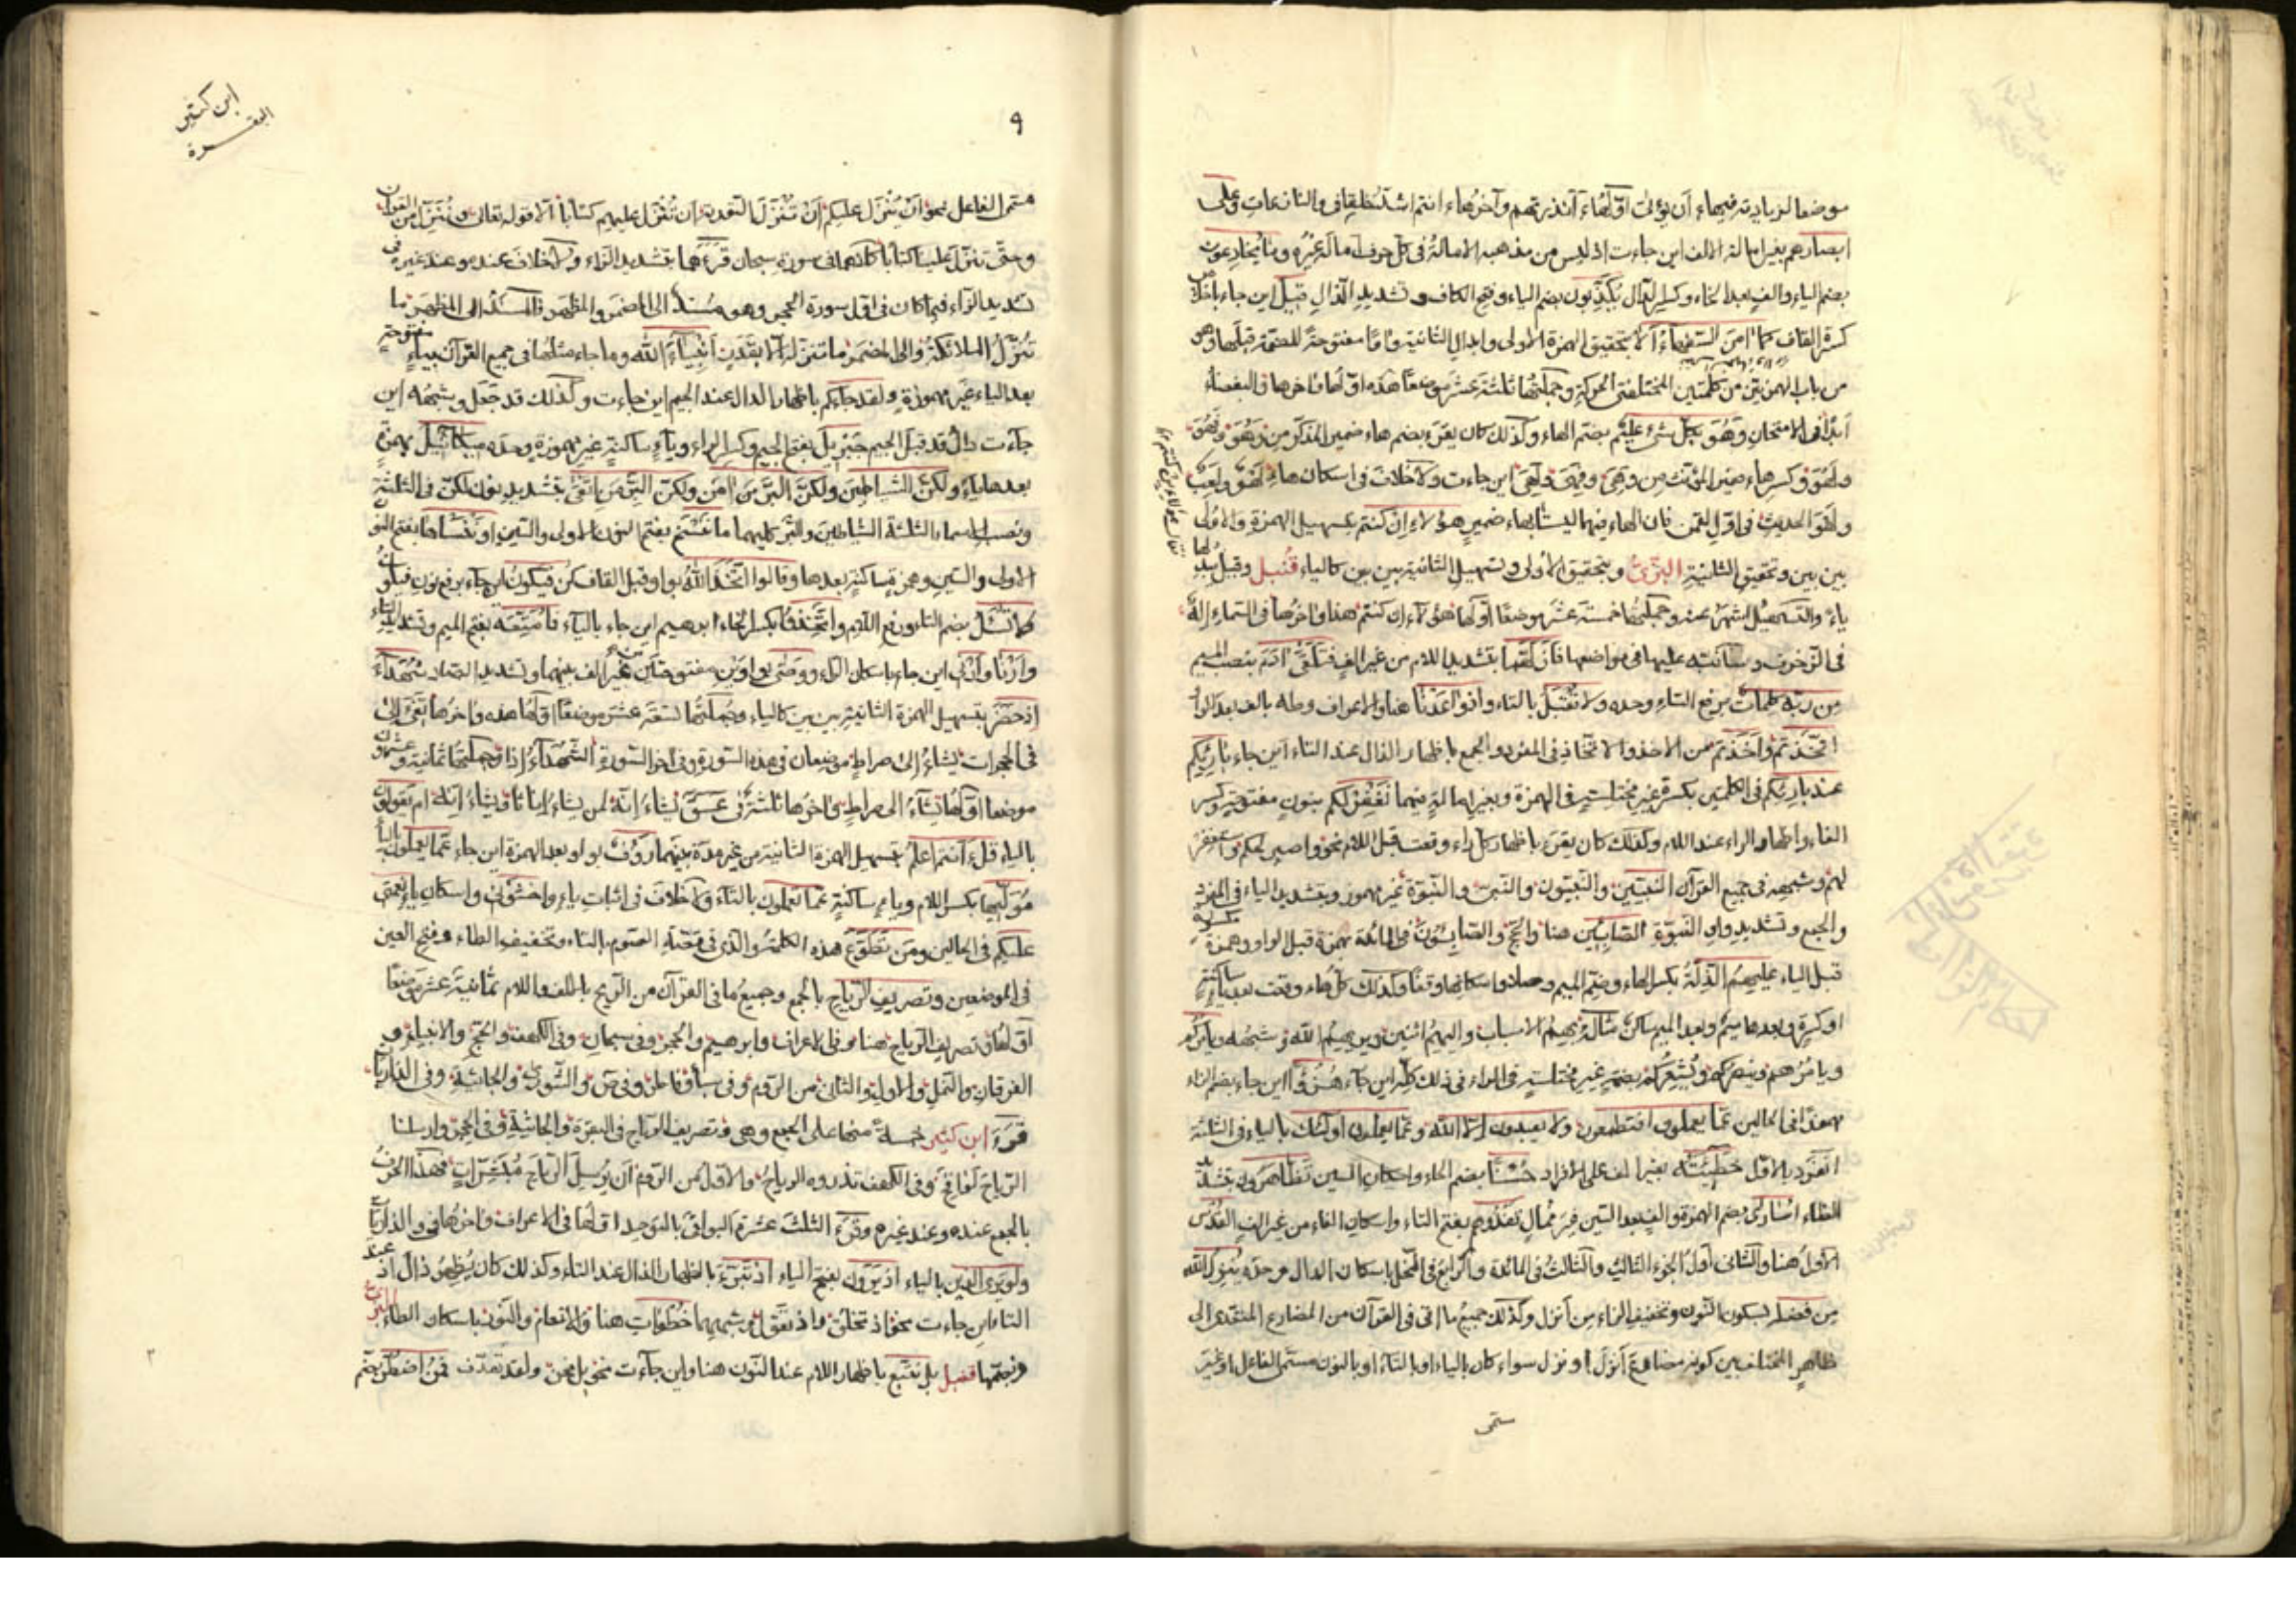 موضعا لزيادته فيها ان يؤتى اولها ءآنذرتهم وآخرها ءانتم اشد خلقا في والنازعات وعلى
ابصارهم بغير امالة الالف اين جاءت اذ ليس من مذهبه الامالة في كل حرف اماله غيره وما يخادعون
بضم الياء والف بعد الخاء وكسر الدال يُكَذِّبون بضم الياء وفتح الكاف وتشديد الذال قيل اين جاء باخلاص
كسرة القاف كما امن السفهاء الا بتحقيق الهمزة الاولى وابدال الثانية واوا مفتوحة للضمة قبلها وهو
من باب الهمزتين من كلمتين المختلفتي الحركة وجملتها ثلثة عشر موضعا هذه اولها واخرها والبغضاء
ابدا في الامتحان وهُوَ بكل شيء عليم بضم الهاء وكذلك كان يقرء بضم هاء ضمير المذكر من وهُوَ فَهُوَ
ولَهُوَ وكسر هاء ضمير المؤنث من وهِيَ وفَهِيَ ولَهِيَ اين جاءت ولا خلاف في اسكان هاء لَهْو ولعب
ولهو الحديث في اول لقمن فان الهاء فيهما ليستا بهاء ضمير هؤلاء ان كنتم بتسهيل الهمزة الاولى
بين بين وتحقيق الثانية البزي وبتحقيق الاولى وتسهيل الثانية بين بين كالياء قنبل وقيل يبدلها
ياء والتسهيل اشهر عنه وجملتها خمسة عشر موضعا اولها هؤلاء ان كنتم هذا واخرها في السماء اله
في الزخرف وسأنبه عليها في مواضعها فازلهما بتشديد اللام من غير الف فتلقى ادم بنصب الميم
من ربه كلمات برفع التاء وحده ولا تقبل بالتاء واذ وٰعدنا هنا والاعراف وطه بالف بعد الواو
اتخذتم واخذتم من الاخذ والاتخاذ في المفرد والجمع باظهار الذال عند التاء اين جاء بارئكم
عند بارئكم في الكلمتين بكسرة غير مختلسة في الهمزة وبغير امالة فيهما نغفر لكم بنون مفتوحة وكسر
الفاء واظهار الراء عند اللام وكذلك كان يقرء باظهار كل راء وقعت قبل اللام نحو واصبر لحكم واستغفر
لهم وشبهه في جميع القرآن النبيّين والنبيّون والنبيّ والنبوّة غير مهموز وبتشديد الياء في المفرد
والجمع وتشديد واو النبوّة الصابئين هنا والحج والصابئون في المائدة بهمزة قبل الواو وهمزة مكسورة
قبل الياء عليهم الذلة بكسر الهاء وضم الميم وصلا واسكانها وقفا وكذلك كل هاء وقعت بعد ياء ساكنة
او كسرة وبعدها ميم وبعد الميم ساكن مثاله بهم الاسباب واليهم اثنين ويريهم الله وشبهه ويأمركم
ويامرهم وينصركم ويشعركم بضمة غير مختلسة في الراء في ذلك كله اين جاء هُزُؤًا اين جاء بضم الزاء
بهمزة في الحالين عما يعملون افتطمعون ولا يعبدون الا الله وعما يعملون اولئك بالياء في الثلثة
انفرد بالاول خطيئته بغير الف على الافراد حُسْنًا بضم الحاء واسكان السين تظّاهرون بتشديد
الظاء اُسَارى بضم الهمزة والف بعد السين غير ممال تَفْدُوهم بفتح التاء واسكان الفاء من غير الف القُدْس
الاول هنا والثاني اول الجزء الثالث والثالث في المائدة والرابع في النحل باسكان الدال وحده يُنْزِل الله
من فضله بسكون النون وتخفيف الزاء من انزل وكذلك جميع ما اتى في القرآن من المضارع المتعدي الى
ظاهر المختلف بين كونه مضارع انزل او نزّل سواء كان بالياء او بالتاء او بالنون مسمى الفاعل او غير
ستمى
ابن كثير
البقرة
٩
مسمى الفاعل نحو ان ينزل عليكم ان تنزل التورية ان تنزل عليهم كتابا الا قوله تعالى وننزل من القرآن
وحتى تنزل علينا كتابا كلاهما في سورة سبحان قرءهما بتشديد الزاء ولا خلاف عنده وعند غيره في
تشديد الزاء فيما كان في اول سورة الحجر وهو مسند الى المضمر والمظهر فالمسند الى المظهر ما
تنزل الملائكة والى المضمر ما ننزله الا بقدر انبياء الله وما جاء مثلها في جميع القرآن بياء مفتوحة
بعد الياء غير مهموزة ولقد جاءكم باظهار الدال عند الجيم اين جاءت وكذلك قد جعل وشبهه اين
جاءت دال قد قبل الجيم جَبْرِيل بفتح الجيم وكسر الراء وياء ساكنة غير مهموزة وحده ميكائيل بهمزة
بعدها ياء ولكنّ الشياطين ولكنّ البرّ من امن ولكنّ البرّ من اتقى بتشديد نون لكنّ في الثلثة
ونصب الاسماء الثلثة الشياطين والبر كليهما ما نَنْسَخ بفتح النون الاولى والسين او نَنْسَأها بفتح النون
الاولى والسين وهمزة ساكنة بعدها وقالوا اتخذ الله بواو قبل القاف كن فيكون اين جاء برفع نون فيكون
ولا تُسْئَلُ بضم التاء ورفع اللام واتخِذوا بكسر الخاء ابرهيم اين جاء بالياء فأُمَتِّعه بفتح الميم وتشديد التاء
وأرْنا وأرْني اين جاء باسكان الراء ووصّى بواوين مفتوحتين من غير الف بينهما وتشديد الصاد شهداء
اذ حضر بتسهيل الهمزة الثانية بين بين كالياء وجملتها تسعة عشر موضعا اولها هذه واخرها تفيء الى
في الحجرات يشاء الى صراط موضعان في هذه السورة وفي اخر السورة الشهداء اذا وجملتها ثمانية وعشرون
موضعا اولها يشاء الى صراط واخرها ثلثة في عسق يشاء انه لمن يشاء اناثا ويشاء انه ام يقولون
بالياء قل ءانتم اعلم بتسهيل الهمزة الثانية من غير مدة بينهما رؤوف بواو بعد الهمزة اين جاء عما يعملون بالياء
مُوَلّيها بكسر اللام وياء ساكنة عما تعملون بالتاء ولا خلاف في اثبات ياء واخشوني واسكان ياء نعمتي
عليكم في الحالين ومن تطوّع هذه الكلمة والذي في قصة الصوم بالتاء وتخفيف الطاء وفتح العين
في الموضعين وتصريف الرياح بالجمع وجميع ما في القرآن من الريح بالالف واللام ثمانية عشر موضعا
اولها وتصريف الرياح هنا وفي الاعراف وابرهيم والحجر وفي سبحان وفي الكهف والحج والانبياء وفي
الفرقان والنمل والاول والثاني من الروم وفي سبأ وفاطر وفي ص والشورى والجاثية وفي الذاريات
قرء ابن كثير خمسة منها على الجمع وهي وتصريف الرياح في البقرة والجاثية وفي الحجر وارسلنا
الرياح لواقح وفي الكهف تذروه الرياح والاول من الروم ان يرسل الرياح مبشرات فهذا الحرف
بالجمع عنده وعند غيره وقرء الثلث عشرة البواقي بالتوحيد اولها في الاعراف واخرها في والذاريات
ولو يرى الذين بالياء اذ يَرَوْن بفتح الياء اذ تبرّء باظهار الذال عند التاء وكذلك كان يُظهر ذال اذ عند
التاء اين جاءت نحو اذ تخلق واذ تقول وشبههما خُطْوات هنا والانعام والنور باسكان الطاء البزي
وبضمها قنبل بل نتبع باظهار اللام عند النون هنا واين جاءت نحو بل نحن ولقد تقدم فمنُ اضطر بضم